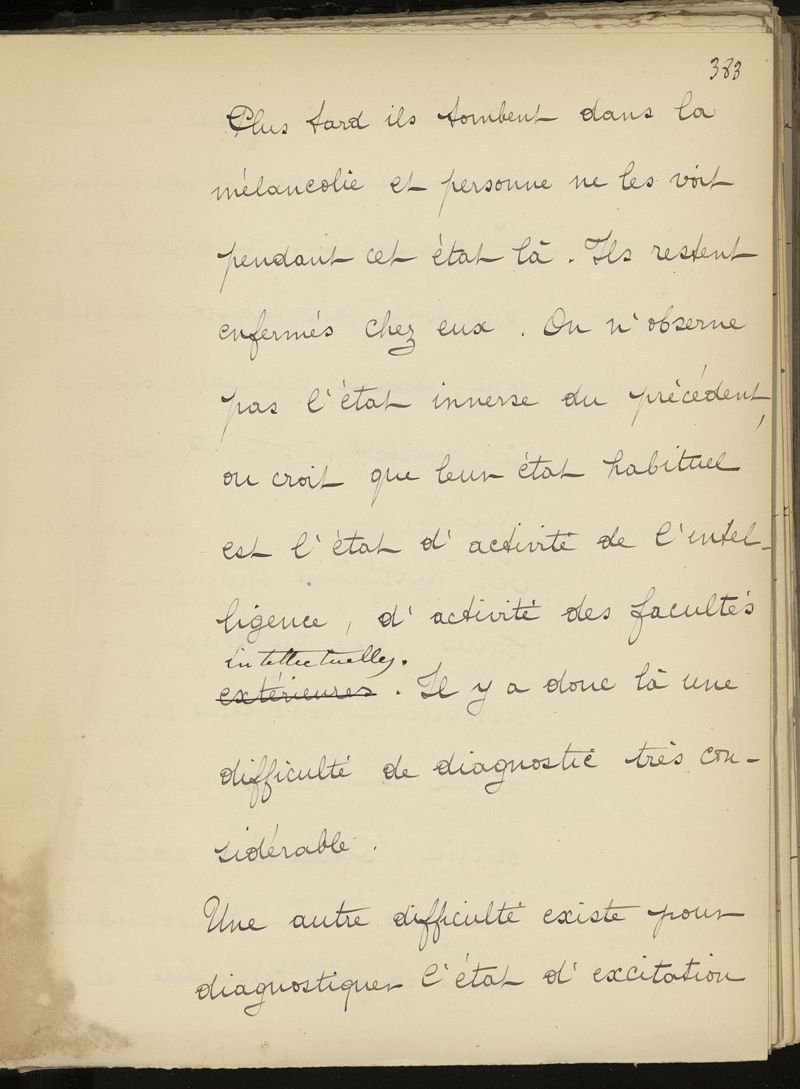 383
Plus tard ils tombent dans la
mélancolie et personne ne les voit
pendant cet état là. Ils restent
enfermés chez eux. On n'observe
pas l'état inverse du précédent,
on croit que leur état habituel
est l'état d'activité de l'intel-
ligence, d'activité des facultés
intellectuelles.
extérieures. Il y a donc là une
difficulté de diagnostic très con-
sidérable.
Une autre difficulté existe pour
diagnostiquer l'état d'excitation